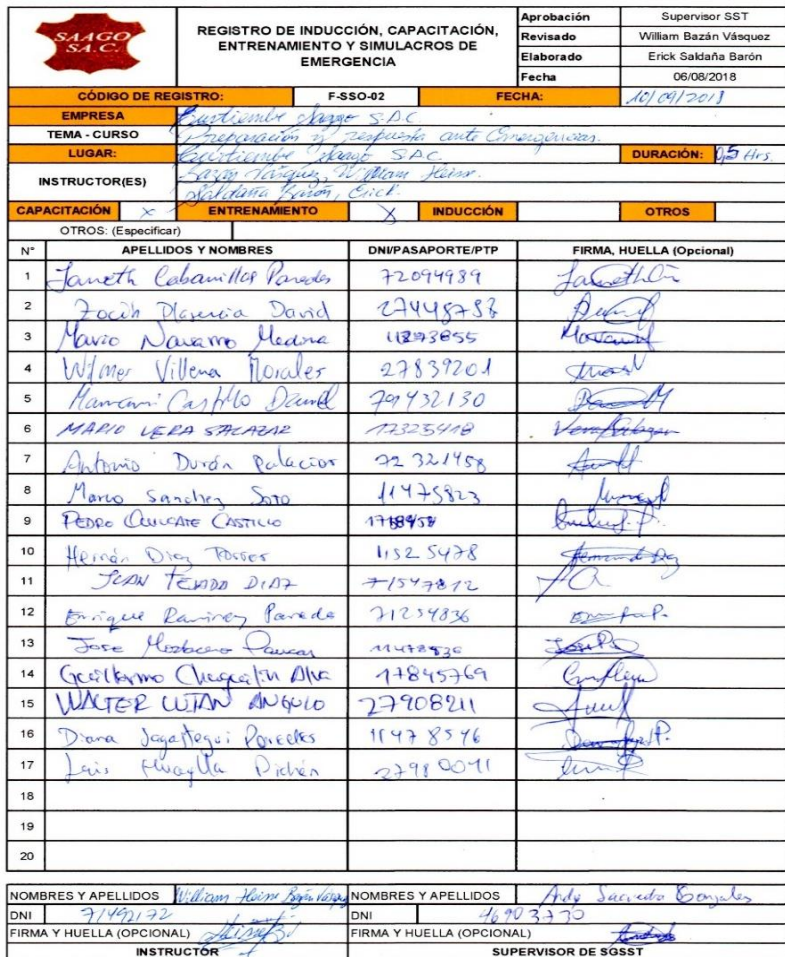 SAAGO
S.A.C.
REGISTRO DE INDUCCIÓN, CAPACITACIÓN,
ENTRENAMIENTO Y SIMULACROS DE
EMERGENCIA
Aprobación Supervisor SST
Revisado William Bazán Vásquez
Elaborado Erick Saldaña Barón
Fecha 06/08/2018
CÓDIGO DE REGISTRO: F-SSO-02 FECHA: 10/09/2018
EMPRESA Curtiembre Saago S.A.C
TEMA - CURSO Preparación y respuesta ante Emergencias.
LUGAR: Curtiembre Saago S.A.C. DURACIÓN: 0,5 Hrs.
INSTRUCTOR(ES) Bazán Vásquez, William
Saldaña Barón, Erick.
CAPACITACIÓN x ENTRENAMIENTO X INDUCCIÓN OTROS
OTROS: (Especificar)
N° APELLIDOS Y NOMBRES DNI/PASAPORTE/PTP FIRMA, HUELLA (Opcional)
1 Janeth Cabanillas Paredes 72094989
2 Plasencia David
3 Mario Navarro Medina
4 Wilmer Villena Morales 27839201
5 Mamani Castillo Daniel 79432130
6 MARIO VERA SALAZAR 17325418
7 Antonio Durán Palacios 72321458
8 Marco Sanchez Soto 11475823
9 PEDRO CASTILLO
10 Hernán Diaz Torres 11325478
11 JUAN TEJADA DIAZ 71547812
12 Enrique Ramirez Paredes 71254836
13 Jose
14 Guillermo Alva 17845769
15 WALTER LUJAN ANGULO 27908211
16 Diana Jagategui Paredes 11478546
17 Luis Huaylla Pichén 27980041
18
19
20
NOMBRES Y APELLIDOS William Bazán Vásquez NOMBRES Y APELLIDOS Andy Saavedra Gonzales
DNI 71492172 DNI 46903730
FIRMA Y HUELLA (OPCIONAL) FIRMA Y HUELLA (OPCIONAL)
INSTRUCTOR SUPERVISOR DE SGSST